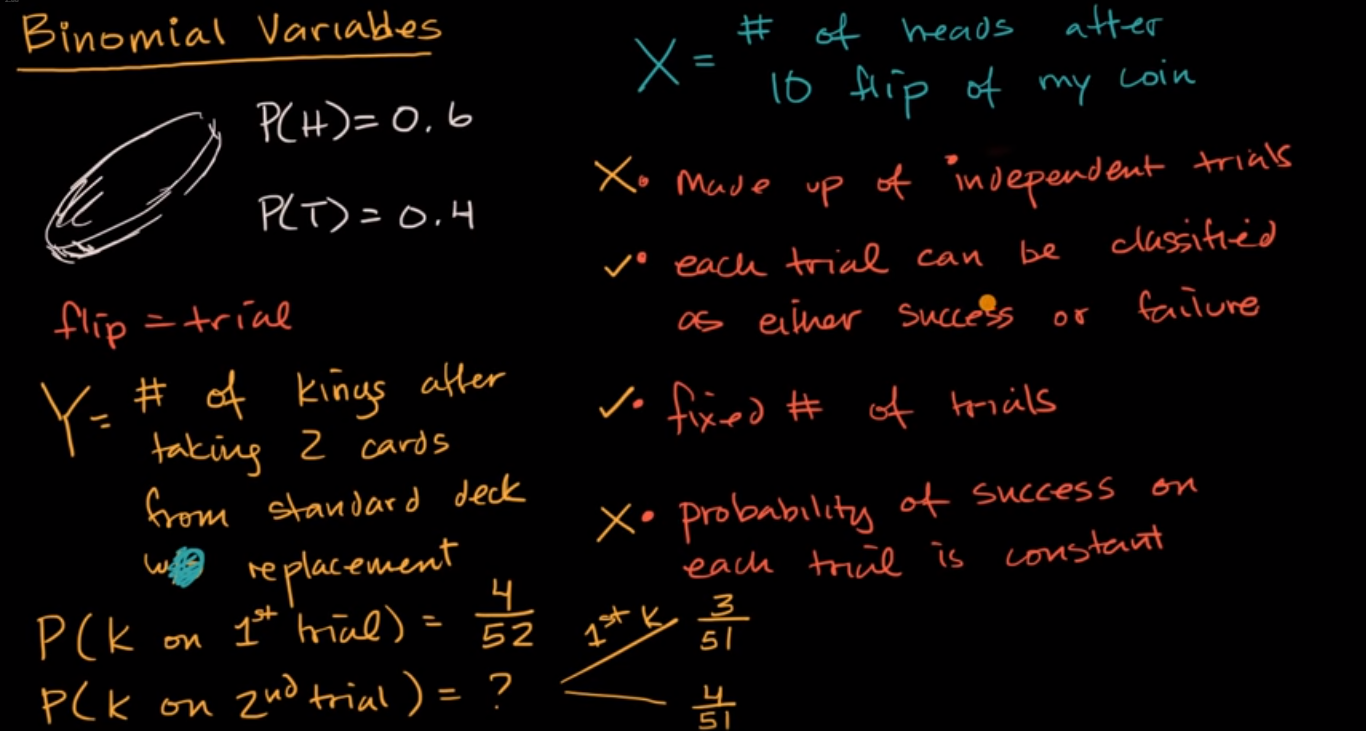 Binomial Variables
P(H)=0.6
P(T)=0.4
flip = trial
Y= # of kings after
taking 2 cards
from standard deck
replacement
P(K on 1st trial) = 4/52
P(K on 2nd trial) = ?
1st K
3/51
4/51
X = # of heads after
10 flip of my coin
X • Made up of independent trials
✓• each trial can be classified
as either success or failure
✓• fixed # of trials
X • probability of success on
each trial is constant